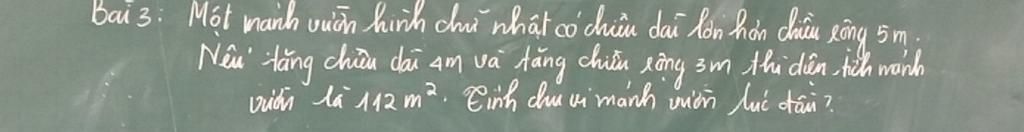 Bài 3: Một mảnh vườn hình chữ nhật có chiều dài lớn hơn chiều rộng 5m.
Nếu tăng chiều dài 4m và tăng chiều rộng 3m thì diện tích mảnh
vườn là 112 m². Tính chu vi mảnh vườn lúc đầu?